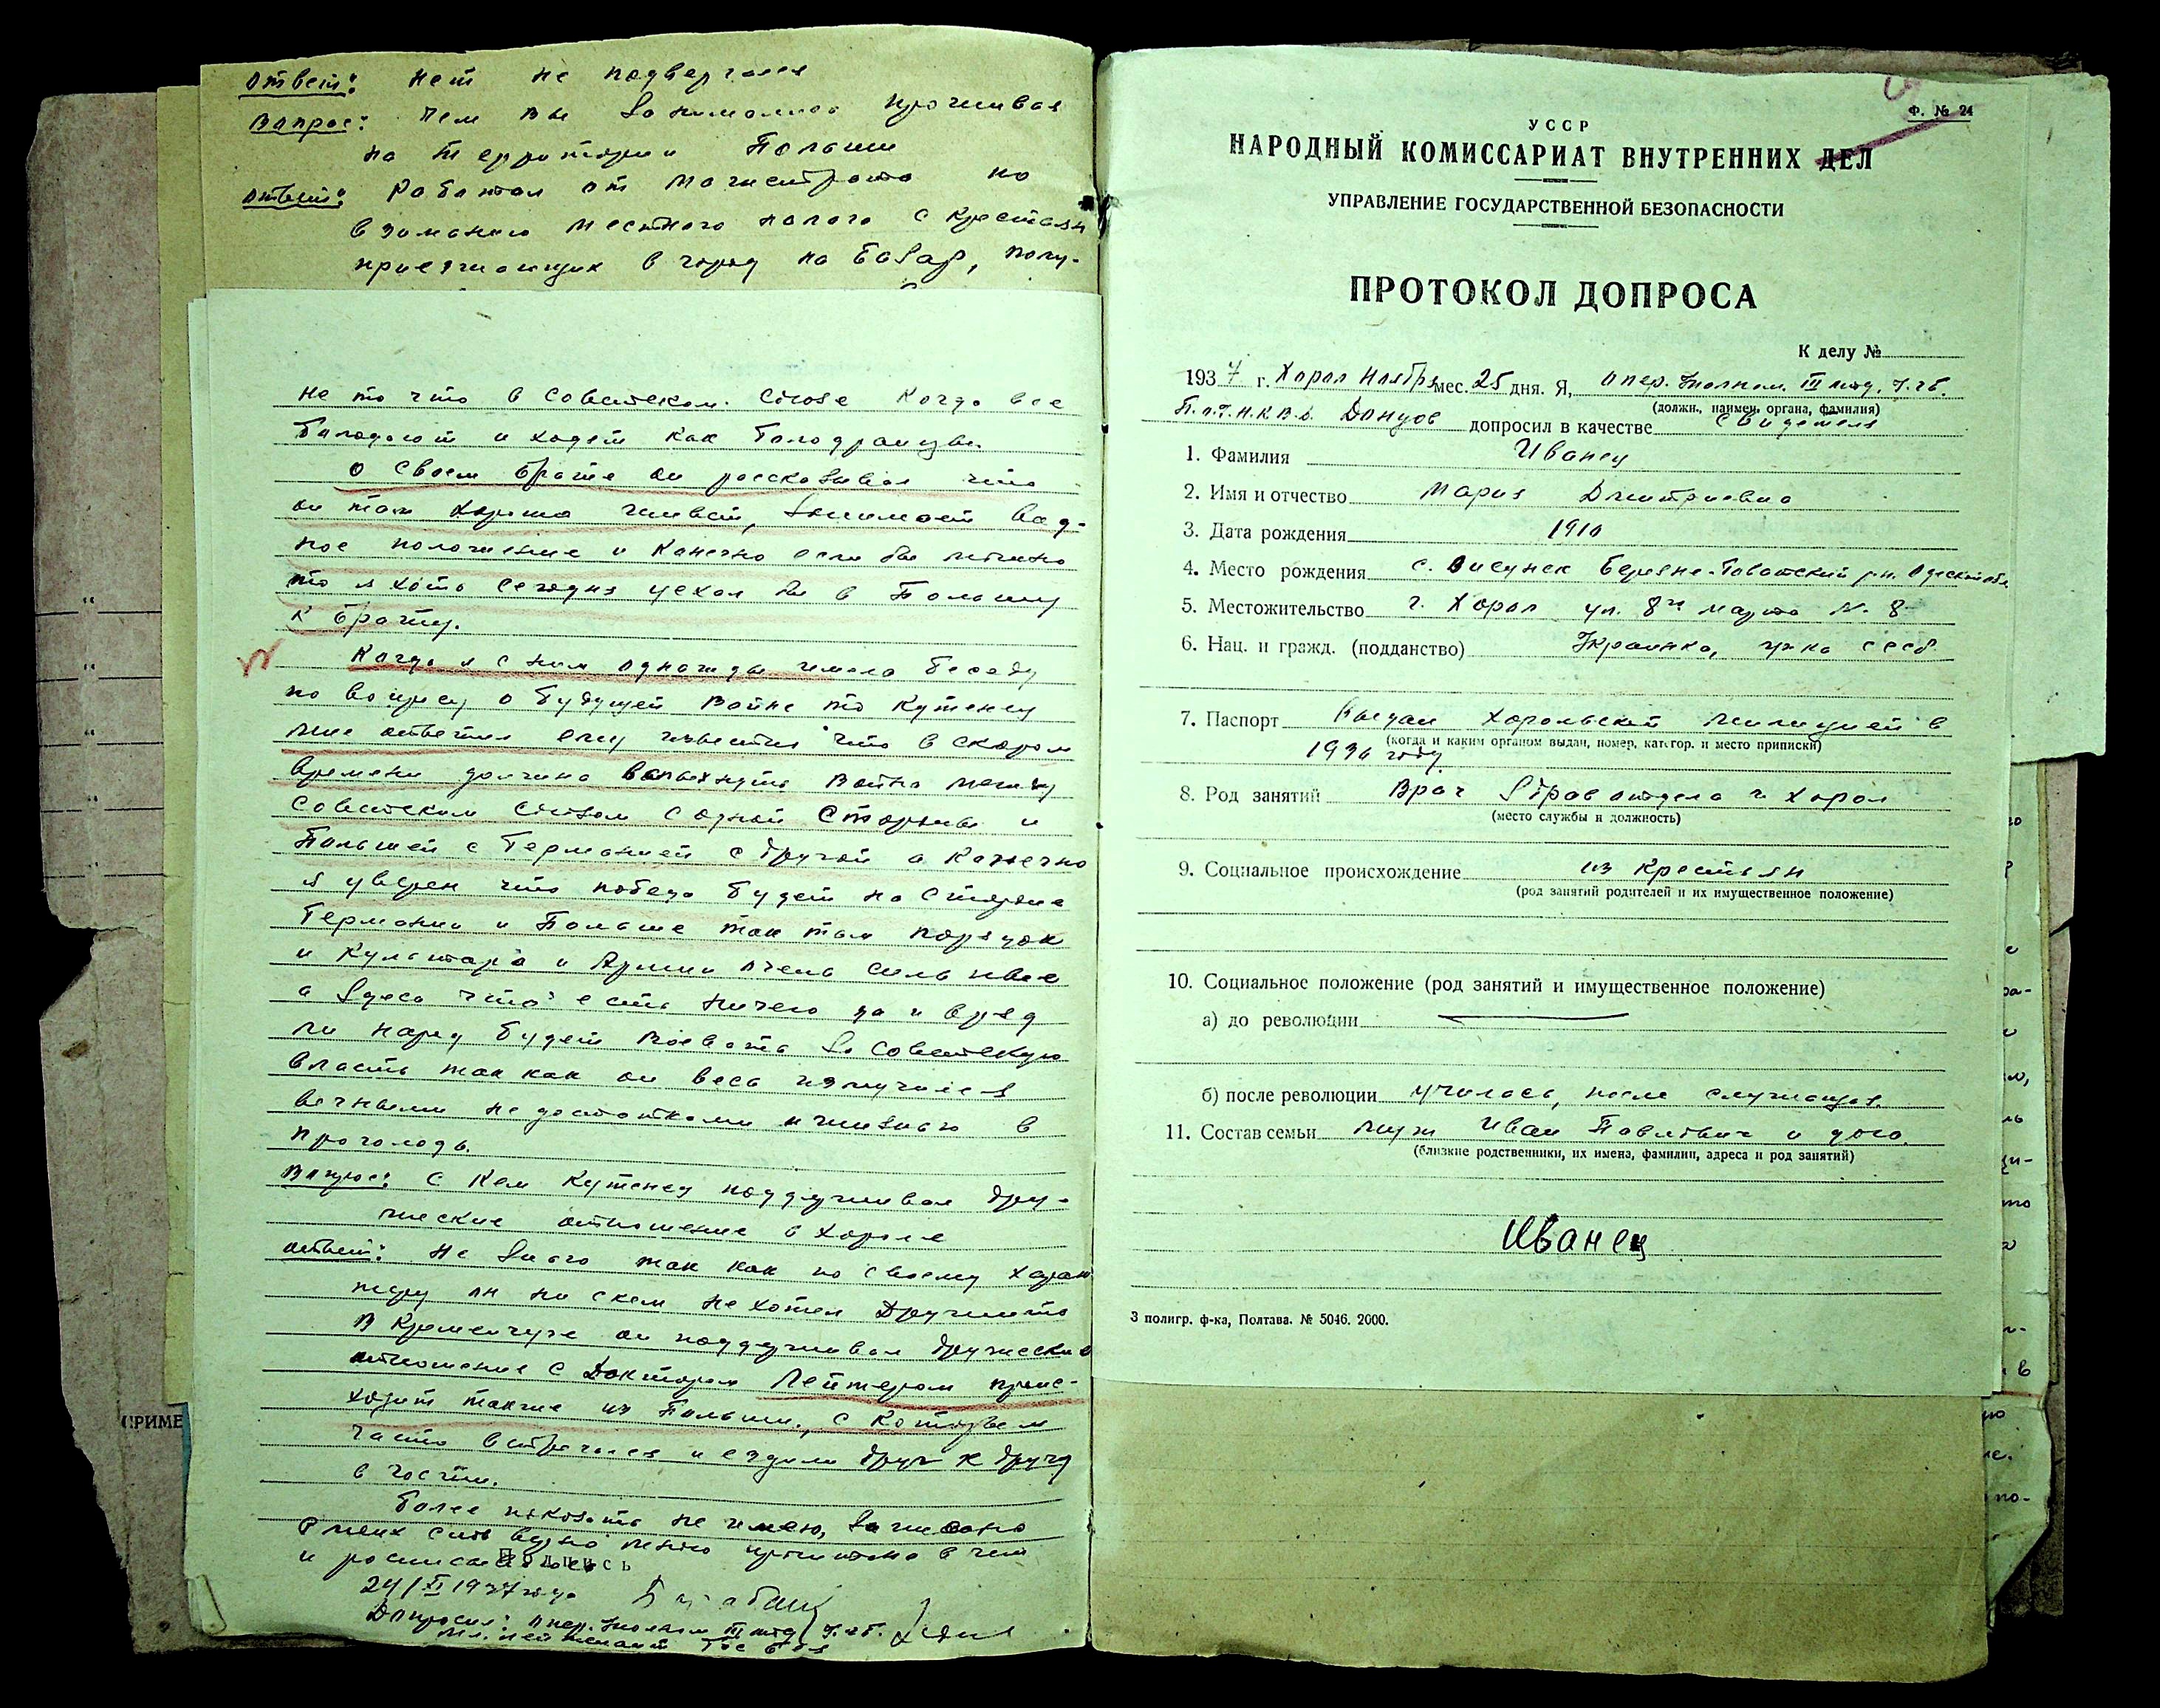 Ответ: Нет не подвергался
Вапрос: Чем вы занимались проживая
на территории Польши
Ответ: Работал от магистрата по
взиманию местного налога с крестьян
приезжающих в город на базар, полу-
не то что в Советском. Союзе когда все
голодают и ходят как голодранцы.
О своем брате он рассказывал что
он там хорошо живет, занимает вод-
ное положение и конечно если бы можно
то я хоть сегодня уехал бы в Польшу
к брату.
Когда я с ним однажды имела беседу
по вопросу о будущей войне то Кутенец
мне ответил ему известно что в скором
времени должна вспыхнуть война между
Советским Союзом с одной стороны и
Польшей с Германией с другой а конечно
я уверен что победа будет на стороне
Германии и Польше так там порядок
и культара и Армии очень сильные
а здесь что есть ничего да и вряд
ли народ будет воевать за Советскую
власть так как он весь измучился
вечными недостатками и жизнью в
проголодь.
Вапрос: С кем Кутенец поддерживал дру-
жеские отношение в Хороле
Ответ: Не знаю так как по своему харак
теру он ни с кем не хотел дружить
В Кременчуге он поддерживал дружеские
отношение с Доктором Лейтером проис-
ходит также из Польши, с которым
часто встречался и ездили друг к другу
в гости.
Более показать не имею, записано
с моих слов верно мною прочитано в чем
и росписываюсь
Подпись
24/XI 1937 года
Допросил: опер. Уполном III отд. УГБ.
мл. лейтенант Гос без
ПРИМЕ
Ф. № 24
УССР
НАРОДНЫЙ КОМИССАРИАТ ВНУТРЕННИХ ДЕЛ
УПРАВЛЕНИЕ ГОСУДАРСТВЕННОЙ БЕЗОПАСНОСТИ
ПРОТОКОЛ ДОПРОСА
К делу №
1937 г. Харол Ноября мес. 25 дня. Я, Опер. Уполном. III отд. У.г.б.
(должн., наимен. органа, фамилия)
П.о.У.Н.К.В.Д. Донцов допросил в качестве Свидетеля
1. Фамилия Иванец
2. Имя и отчество Мария Дмитриевна
3. Дата рождения 1910
4. Место рождения с. Висунск Березне-Говатский р-н. Одеской обл.
5. Местожительство г. Хорол ул. 8го марта N. 8
6. Нац. и гражд. (подданство) Украинка, гр-ка СССР
7. Паспорт Выдан Хорольской милицией в
(когда и каким органом выдан, номер, категор. и место приписки)
1936 году.
8. Род занятий Врач Здравотдела г Харол
(место службы и должность)
9. Социальное происхождение из крестьян
(род занятий родителей и их имущественное положение)
10. Социальное положение (род занятий и имущественное положение)
а) до революции
б) после революции училась, после служащая
11. Состав семьи муж Иван Павлович и дочь.
(близкие родственники, их имена, фамилии, адреса и род занятий)
Иванец
3 полигр. ф-ка, Полтава. № 5046. 2000.